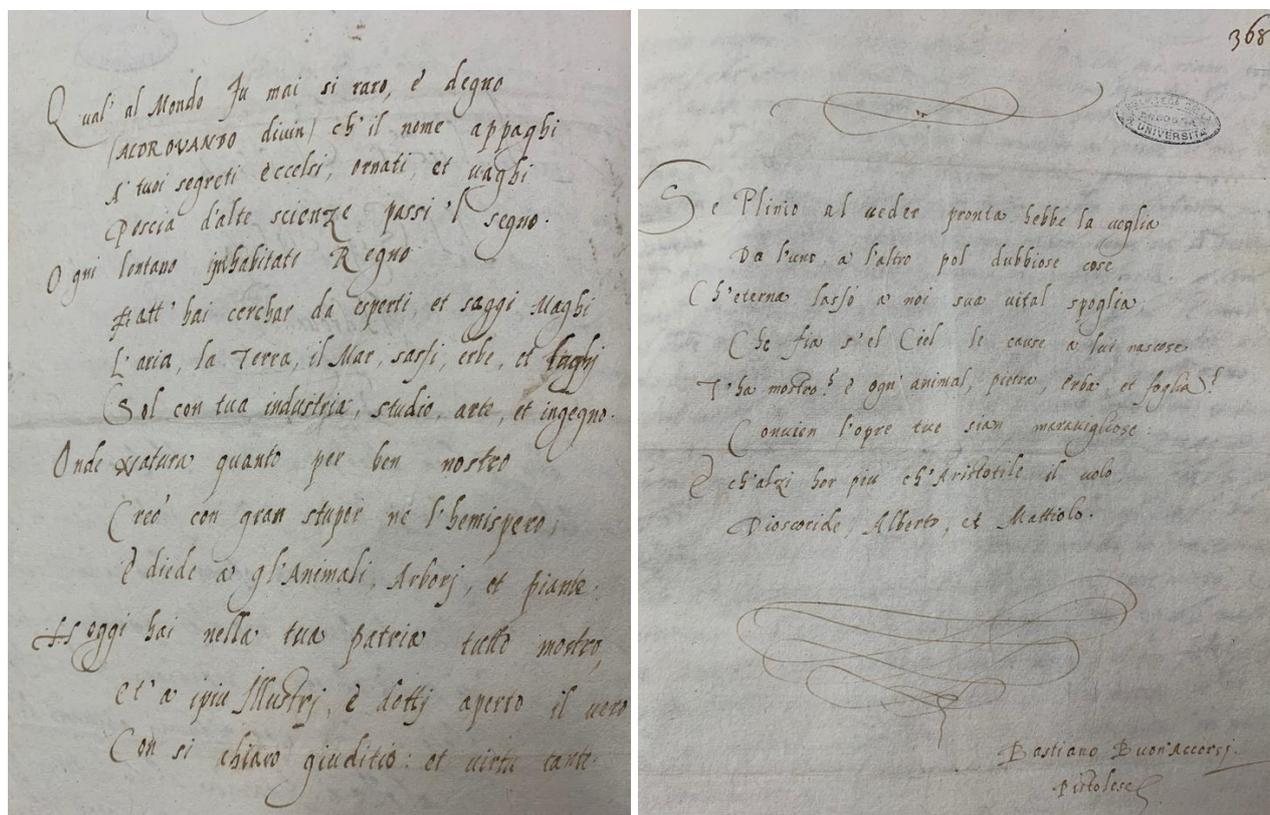 Qual' al Mondo fu mai si raro, è degno
(ALDROVANDO divin) ch'il nome appaghi
A' tuoi segreti eccelsi, ornati, et vaghi
Poscia d'alte scienze passi 'l segno.
Ogni lontano inhabitato Regno
Fatt' hai cerchar da esperti, et saggi Maghi
L'aria, la Terra, il Mar, sassi, erbe, et laghj
Sol con tua industria, studio, arte, et ingegno.
Onde Natura quanto per ben nostro
Creó con gran stupor ne l'hemispero,
È diede a gl'Animali, Arborj, et piante.
Hoggi hai nella tua patria tutto mostro,
et' a ipiu Illustrj, è dottj aperto il vero
Con si chiaro giuditio: et virtu tante.
368
BIBLIOTECA
BOLOGNA
UNIVERSITÀ
Se Plinio al veder pronta hebbe la voglia
Da l'uno, a l'altro pol dubbiose cose
Ch'eterna lassó a noi sua vital spoglia
Che fia s'el Ciel le cause a lui nascose
T'ha mostro? è ogn' animal, pietra, erba, et foglia?
Convien l'opre tue sian maravigliose:
È ch'alzi hor piu ch'Aristotile il volo
Dioscoride, Alberto, et Mattiolo.
Bastiano Buon'Accorsj.
Pistolese